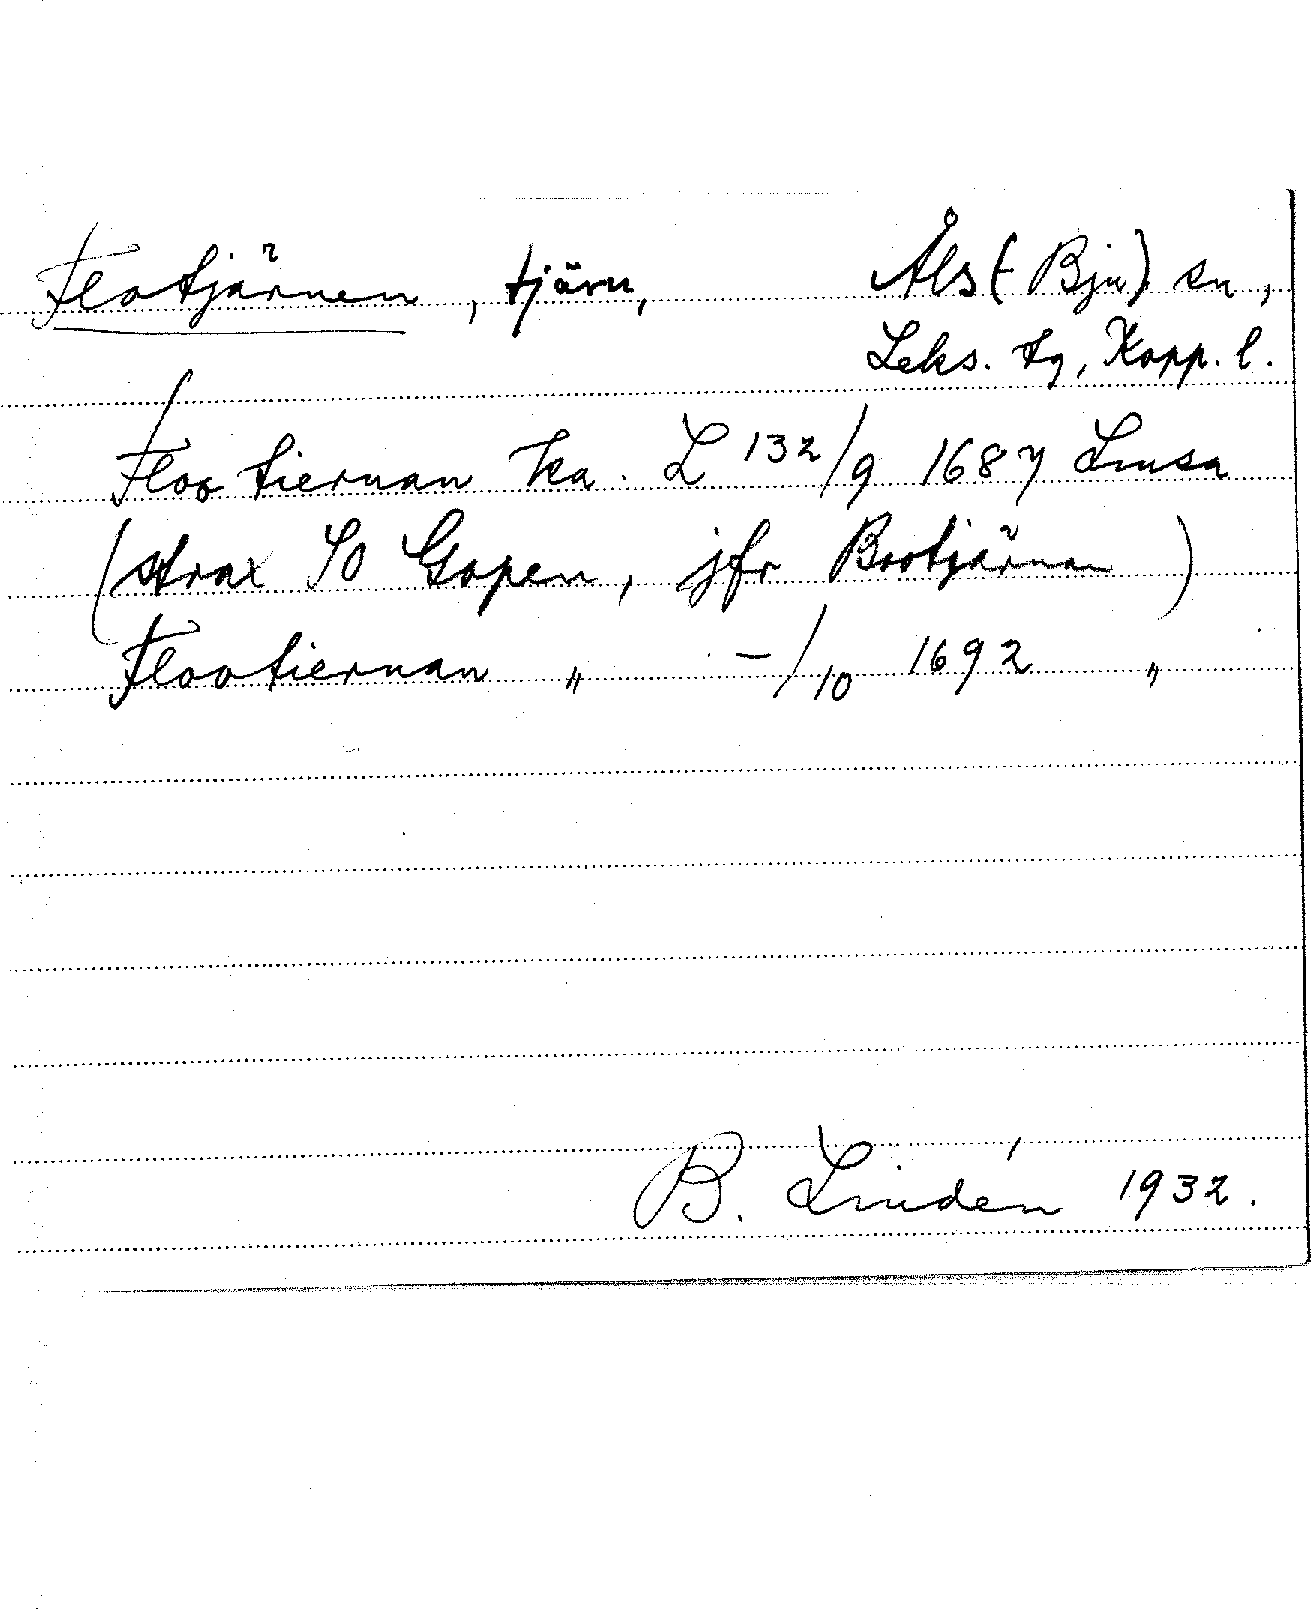 Flotjärnen, tjärn, Åls (-Bju) sn,
Leks. tg, Kopp. l.
Floo tiernan ka. L 132/9 1687 Linsa
(strax SO Gopen, jfr Brotjärnan)
Flootiernan " -/10 1692 "
B. Lindén 1932.